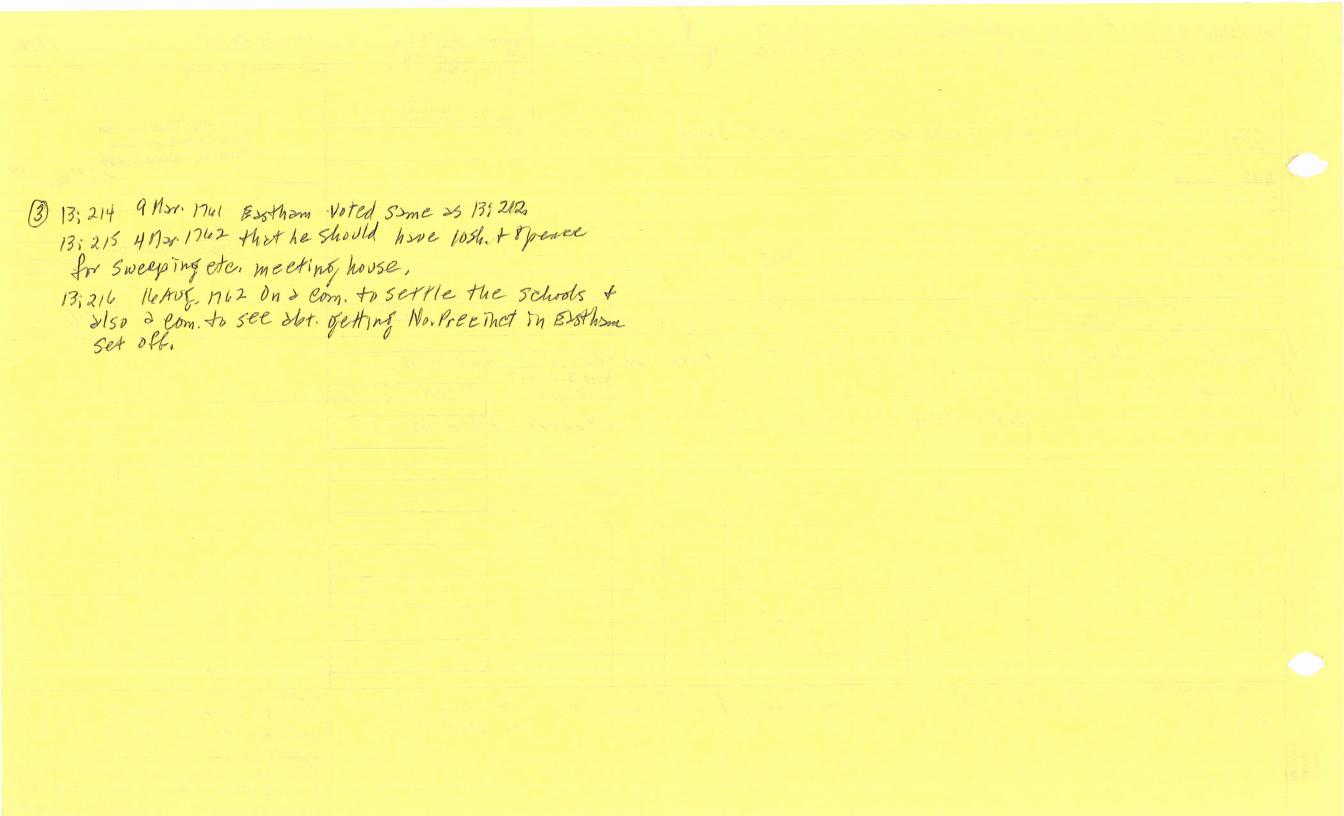 ③ 13; 214 9 Mar. 1761 Eastham voted same as 13; 212.
13; 215 4 Mar. 1762 that he should have 10sh. & 8pence
for sweeping etc. meeting house.
13; 216 16 Aug. 1762 On a com. to settle the schools &
also a com. to see abt. getting No. Precinct in Eastham
set off.